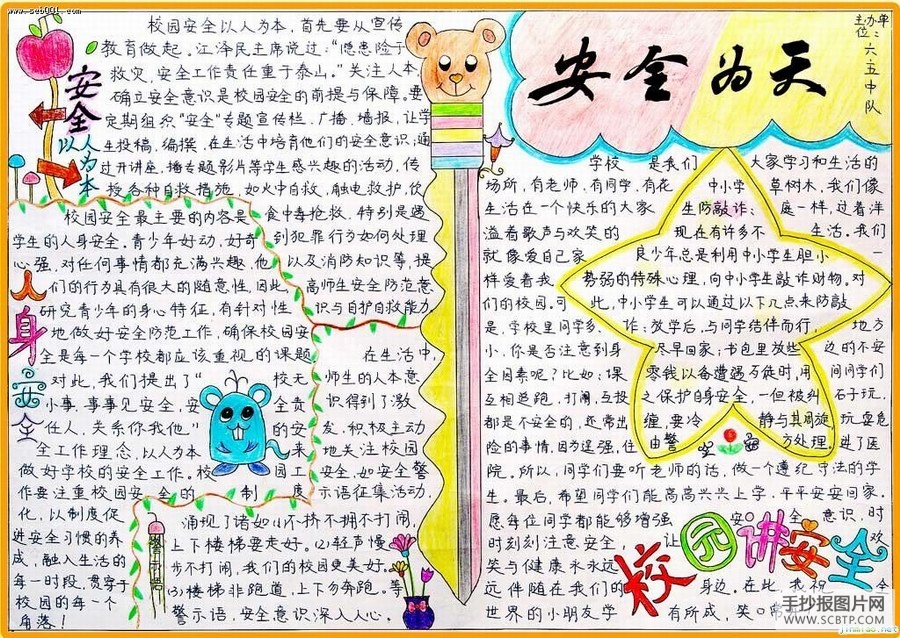 www.scb001.com
主办单位：六.五中队
安全为天
安全
以人为本
校园安全以人为本，首先要从宣传
教育做起。江泽民主席说过：“隐患险于
救灾，安全工作责任重于泰山。”关注人本，
确立安全意识是校园安全的前提与保障。要
定期组织“安全”专题宣传栏，广播，墙报，让学
生投稿，编撰，在生活中培育他们的安全意识；通
过开讲座，播专题影片等学生感兴趣的活动，传
授各种自救措施，如火中自救，触电救护，饮
食中毒抢救。特别是遇
到犯罪行为如何处理
以及消防知识等，提
高师生安全防范意
识与自护自救能力
人身安全
校园安全最主要的内容是
学生的人身安全。青少年好动，好奇
心强，对任何事情都充满兴趣，他
们的行为具有很大的随意性，因此，
研究青少年的身心特征，有针对性
地做好安全防范工作，确保校园安
全是每一个学校都应该重视的课题
对此，我们提出了“校无
小事，事事见安全，安全责
任人，关系你我他。”的安
全工作理念，以人为本
做好学校的安全工作。校园工
作要注重校园安全的制度
化，以制度促
进安全习惯的养
成，融入生活的
每一时段，贯穿于
校园的每一个
角落！
在生活中，
师生的人本意
识得到了激
发，积极主动
地关注校园
安全，如安全警
示语征集活动，
警示语
涌现了诸如⑴不挤不拥不打闹，
上下楼梯要走好。⑵轻声慢
步不打闹，我们的校园更美好。
⑶楼梯非跑道，上下勿奔跑。等
警示语，安全意识深入人心。
学校是我们大家学习和生活的
场所，有老师，有同学，有花草树木，我们像
生活在一个快乐的大家庭一样，过着洋
溢着歌声与欢笑的生活。我们
就像爱自己家一
样爱着我
们的校园，可
是，学校里同学多，地方
小，你是否注意到身边的不安
全因素呢？比如：课间同学们
互相追跑，打闹，互投石子玩，
都是不安全的，还常出玩耍危
险的事情，因为逞强，住进了医
院。所以，同学们要听老师的话，做一个遵纪守法的学
生。最后，希望同学们能高高兴兴上学，平平安安回家。
愿每位同学都能够增强安全意识，时
时刻刻注意安全让欢
笑与健康永永远
远伴随在我们的身边。在此，我祝全
世界的小朋友学有所成，笑口
中小学
生防敲诈：
现在有许多不
良少年总是利用中小学生胆小
势弱的特殊心理，向中小学生敲诈财物。对
此，中小学生可以通过以下几点来防敲
诈：放学后，与同学结伴而行，
尽早回家；书包里放些
零钱以备遭遇歹徒时，用
之保护自身安全，一但被纠
缠，要冷静与其周旋
由警方处理
校园讲安全
手抄报图片网
WWW.SCBTP.COM